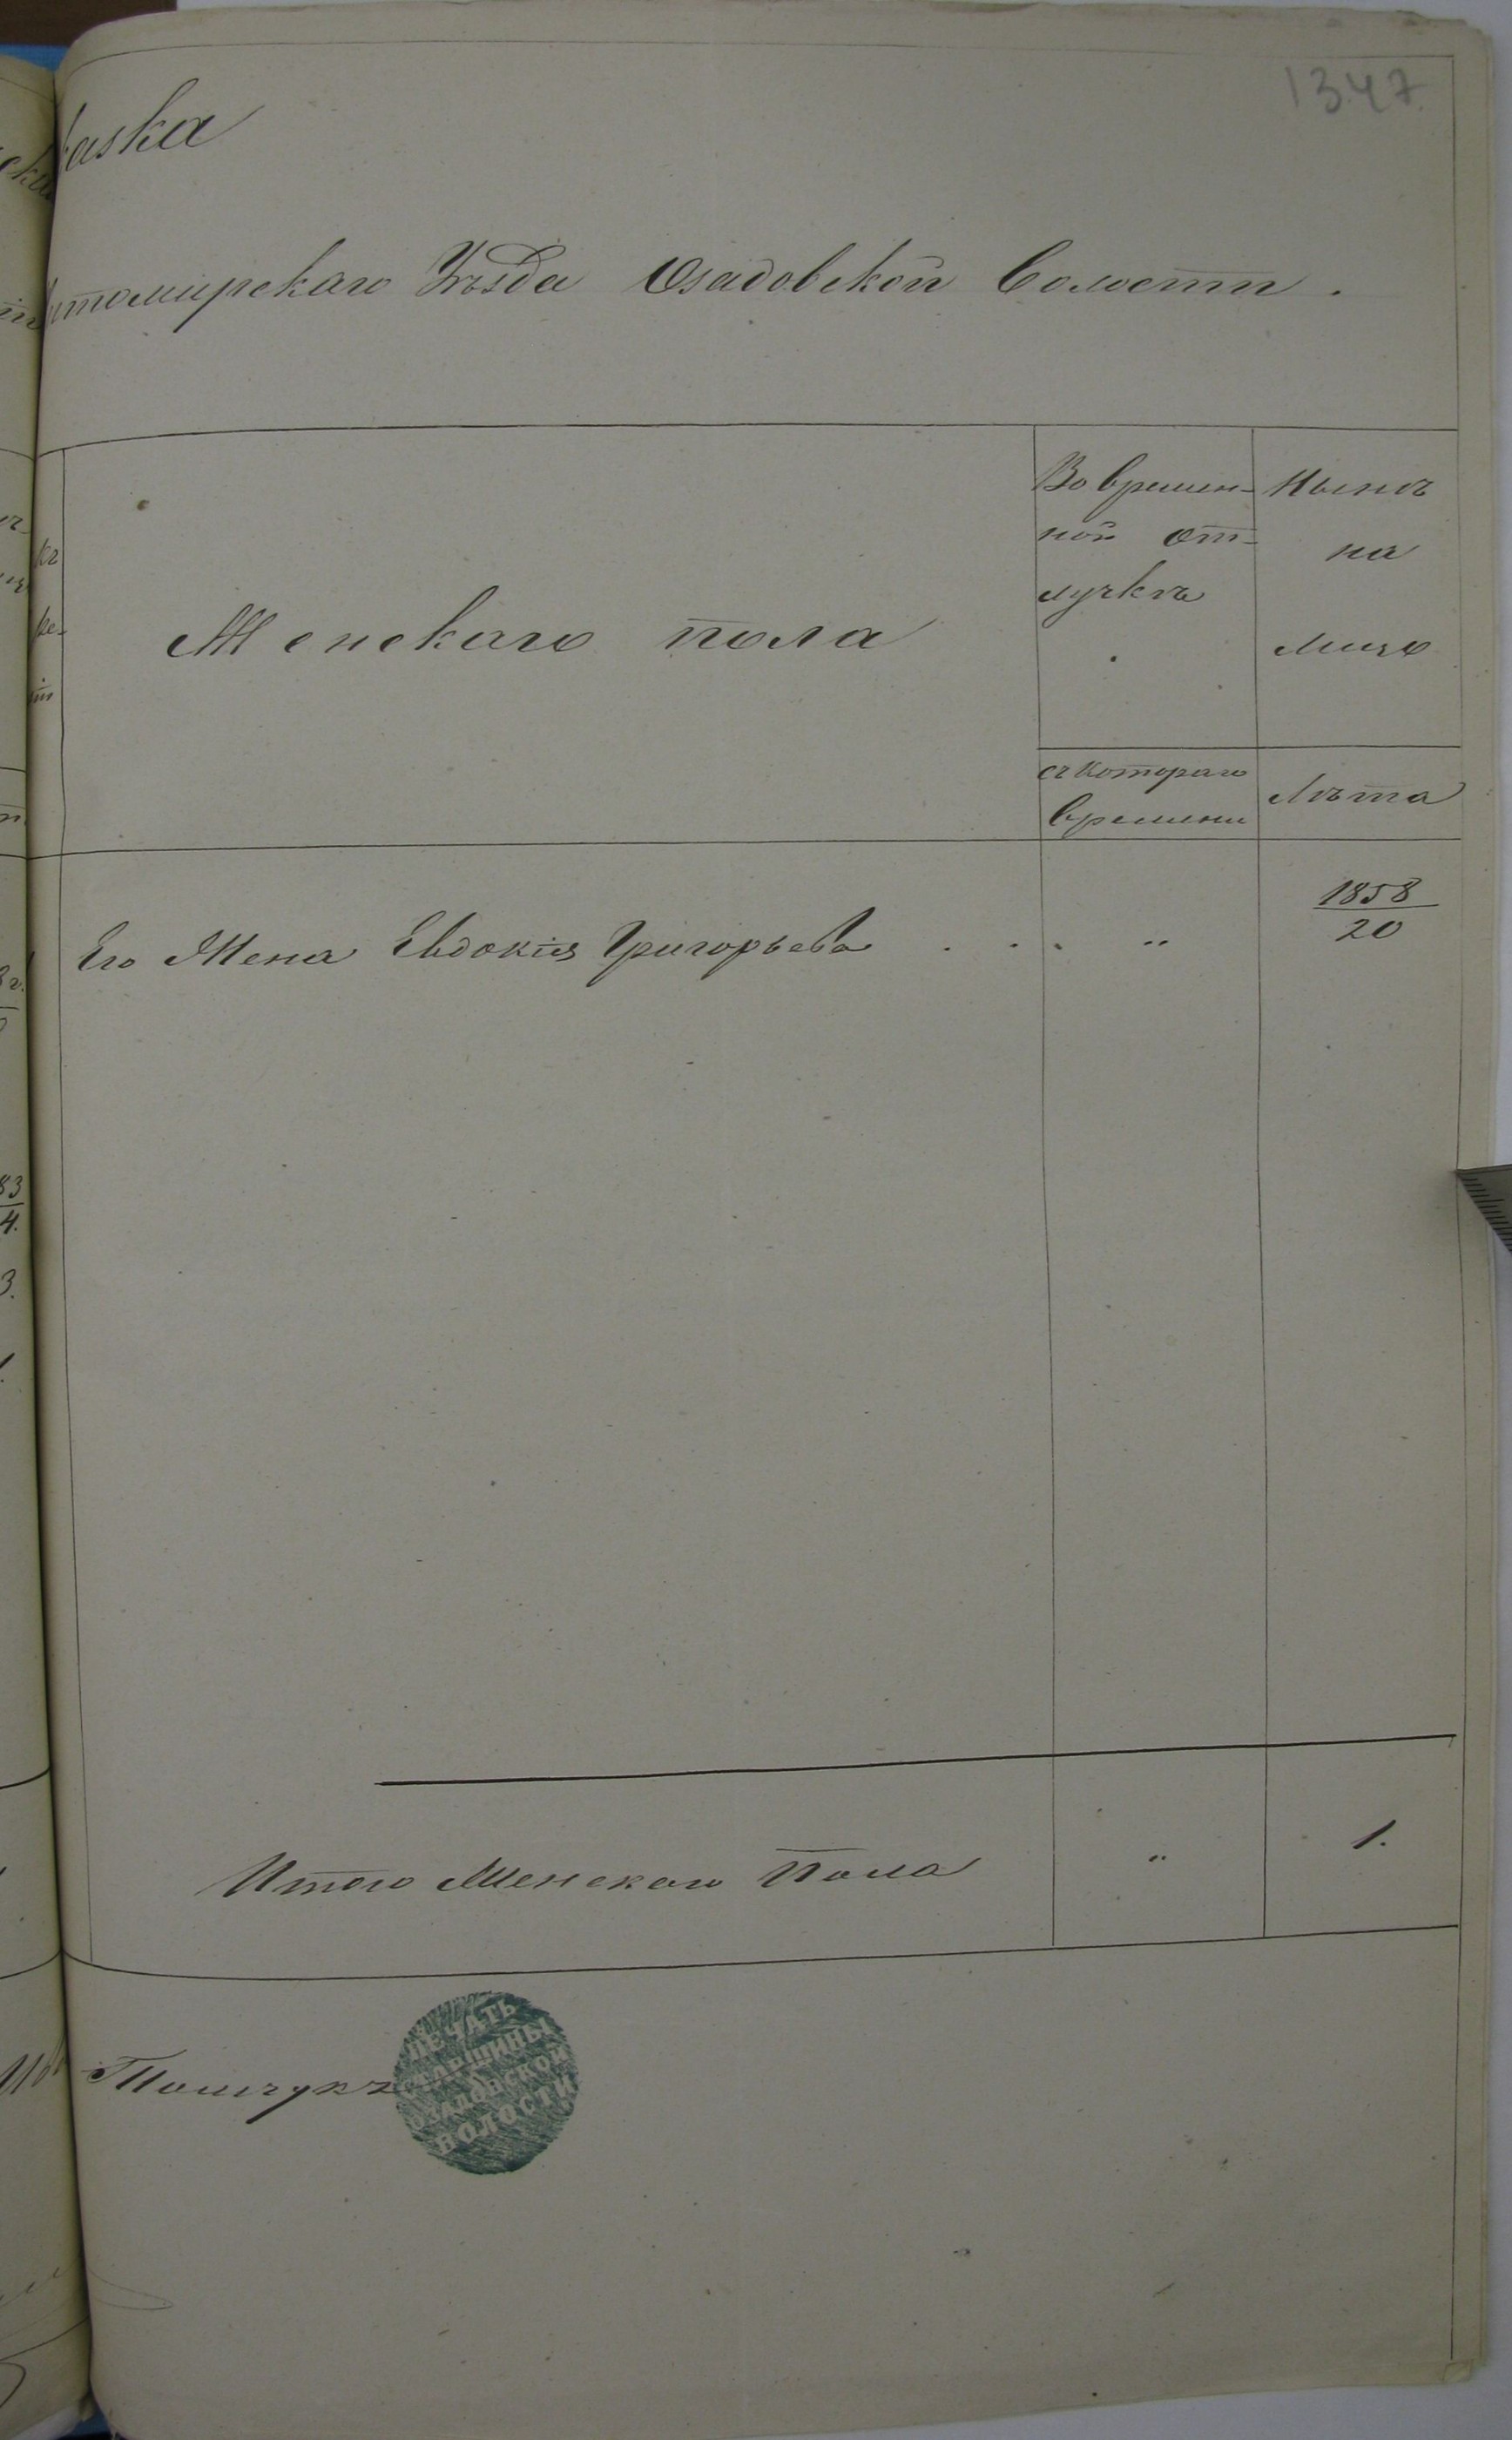 1347.
азка
итомирскаго Уѣзда Озадовской Волости.
Женскаго пола
Во времен-
ной от-
лучкѣ
Нынѣ
на
лицо
съ котораго
времени
Лѣта
Его Жена Евдокія Григорьева . . . "
1858
20
Итого Женскаго Пола " 1.
ПЕЧАТЬ
СТАРШИНЫ
ОЗАДОВСКОЙ
ВОЛОСТИ